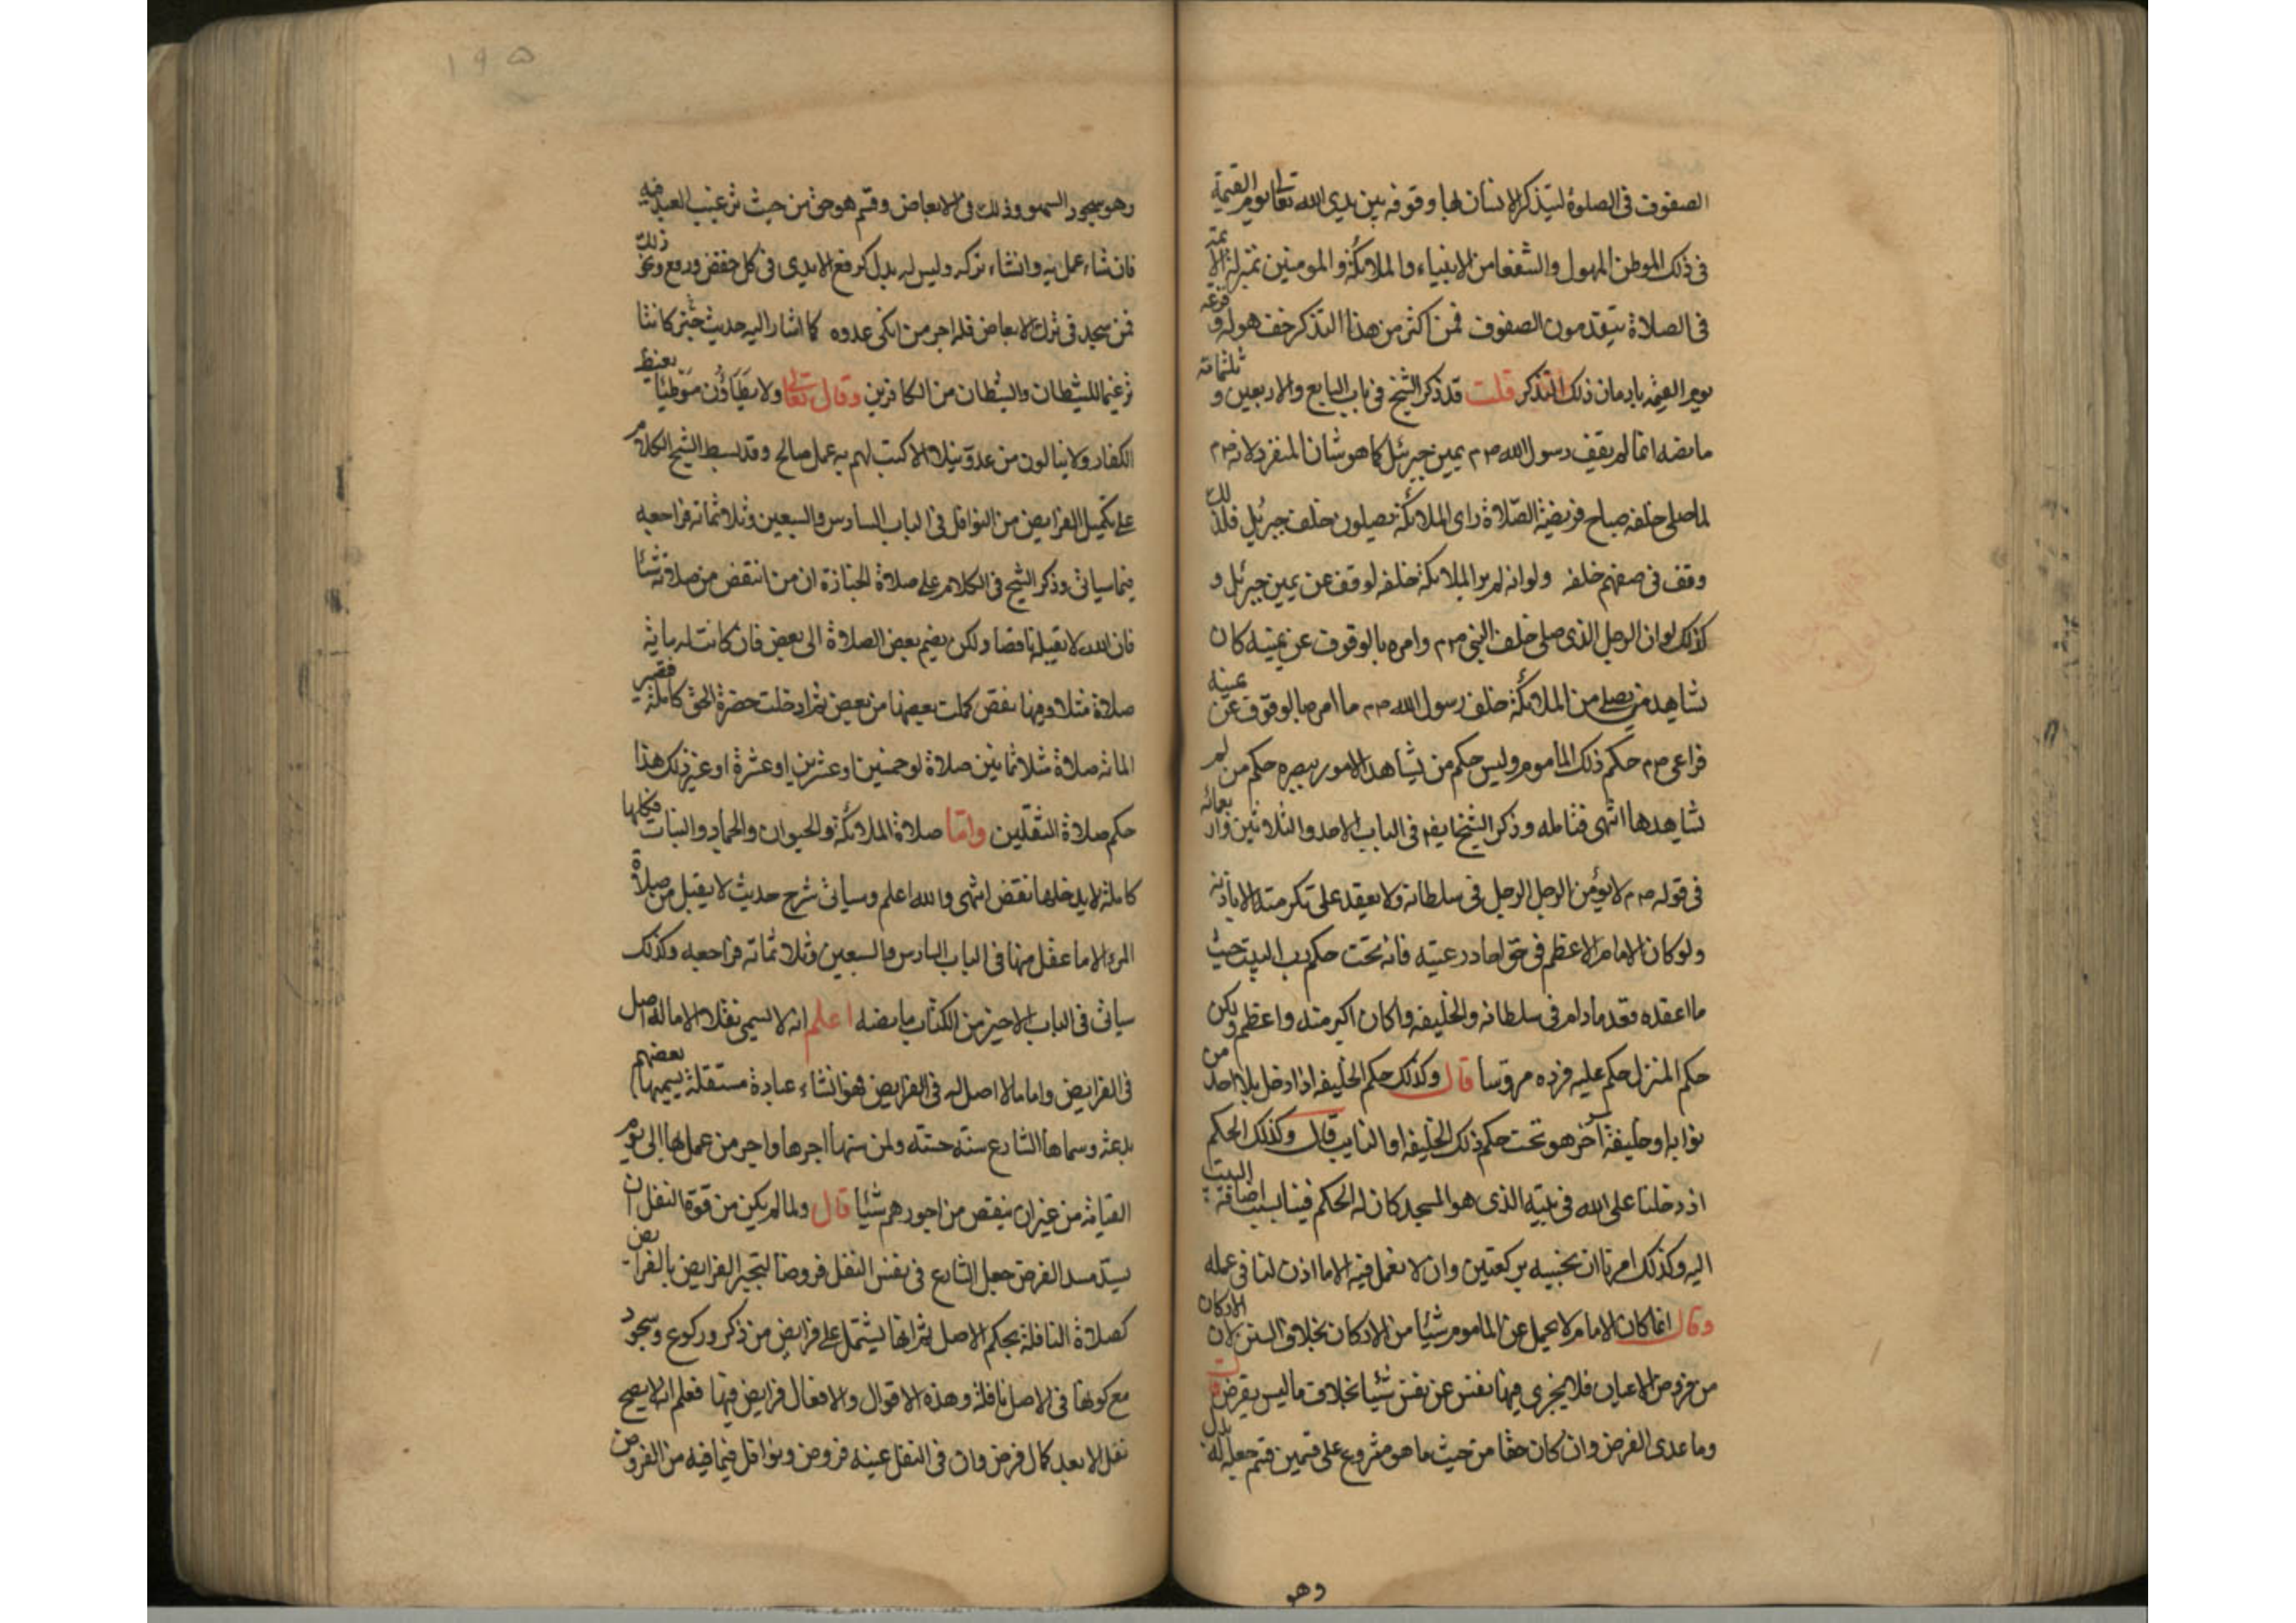 الصفوف فى الصلوة ليتذكر الانسان لها وقوفه بين يدى الله تعالى يوم القيمة
فى ذلك الموطن المهول والشفعا من الانبياء والملائكة والمومنين بمنزلة الائمة
فى الصلاة يتقدمون الصفوف فمن اكثر من هذا التذكر خف هوله وفزعه
يوم القيمة بادمان ذلك التذكر قلت قد ذكر الشيخ فى باب السابع والاربعين و ثلثمائة
ما نصه انما لم يقف رسول الله صم يمين جبرئيل كما هو شان المنفرد لانه صم
لما صلى خلفه صباح فريضة الصلاة راى الملائكة يصلون خلف جبرئيل فلذلك
وقف فى صفهم خلفه ولو انه لم ير الملائكة خلفه لوقف عن يمين جبرئيل و
كذلك لو ان الرجل الذى صلى خلف النبى صم وامره بالوقوف عن يمينه كان
يشاهد من يصلى من الملائكة خلف رسول الله صم ما امره بالوقوف عن يمينه
فراعى صم حكم ذلك الماموم وليس حكم من يشاهد الامور ببصره حكم من لم
يشاهدها انتهى فتامله وذكر الشيخ ايضا فى الباب الاحد والثلاثين واربعمائة
فى قوله صم لا يؤمن الرجل الرجل فى سلطانه ولا يقعد على تكرمته الا باذنه
ولو كان الامام الاعظم فى حق احاد رعيته فانه تحت حكم رب البيت حيث
ما اقعده قعد مادام فى سلطانه والخليفه وان كان اكبر منه واعظم ولكن
حكم المنزل حكم عليه فرده مرؤسا قال وكذلك حكم الخليفه اذا دخل بلد احد من
نوابه او خليفة آخر هو تحت حكم ذلك الخليفه او النايب قال وكذلك الحكم
اذ دخلنا على الله فى بيته الذى هو المسجد كان له الحكم فينا بسبب اضافة البيت
اليه وكذلك امرنا ان نحييه بركعتين وان لا نعمل فيه الا ما اذن لنا فى عمله
وقال انما كان الامام لا يحمل عن الماموم شيئا من الاركان بخلاف السنن لان الاركان
من فروض الاعيان فلا يجزى فيها نفس عن نفس شيئا بخلاف ما ليس بفرض قلت
وما عدى الفرض وان كان حقا من حيث ما هو مشروع على قسمين قسم جعل له بدل
وهو
١٩٥
وهو سجود السهو وذلك فى الابعاض وقسم هو حق من حيث ترغيب العبد فيه
فان شاء عمل به وان شاء تركه وليس له بدل كرفع الايدى فى كل خفض ورفع ونحو ذلك
فمن سجد فى ترك الابعاض فله اجر من انكى عدوه كما اشار اليه حديث حتى كانتا
ترغيما للشيطان والشيطان من الكافرين وقال تعالى ولا يطؤن موطئا يغيظ
الكفار ولا ينالون من عدو نيلا الا كتب لهم به عمل صالح وقد بسط الشيخ الكلام
على تكميل الفرايض من النوافل فى الباب السادس والسبعين وثلاثمائة فراجعه
فيما سياتى وذكر الشيخ فى الكلام على صلاة الجنازة ان من انتقض من صلاته شيئا
فان الله لا يقبلها ناقصا ولكن يضم بعض الصلاة الى بعض فان كانت له ماية
صلاة مثلا وفيها نقص كملت بعضها من بعض ثم ادخلت حضرة الحق كاملة فتصير
الماية صلاة مثلا ثمانين صلاة او خمسين او عشرين او عشرة او غير ذلك هذا
حكم صلاة الثقلين واما صلاة الملائكة والحيوان والجماد والنبات فكلها
كاملة لا يدخلها نقض انتهى والله اعلم وسياتى شرح حديث لا يقبل من صلاة
المرء الا ما عقل منها فى الباب السادس والسبعين وثلاثمائة فراجعه وكذلك
سياتى فى الباب الاخير من الكتاب ما نصه اعلم انه لا يسمى نفلا الا ما له اصل
فى الفرايض واما ما لا اصل له فى الفرايض فهو انشاء عبادة مستقلة يسميها بعضهم
بدعة وسماها الشارع سنة حسنة ولمن سنها اجرها واجر من عمل بها الى يوم
القيامة من غير ان ينقص من اجورهم شيئا قال ولما لم يكن من قوة النفل ان
يسد مسد الفرض جعل الشارع فى نفس النفل فروضا لتجبر الفرايض بالفرايض
كصلاة النافلة بحكم الاصل ثم انها تشتمل على فرايض من ذكر وركوع وسجود
مع كونها فى الاصل نافلة وهذه الاقوال والافعال فرايض فيها فعلم انه لا يصح
نفل الا بعد كمال فرض وان فى النفل عينه فروض ونوافل فيما فيه من الفروض